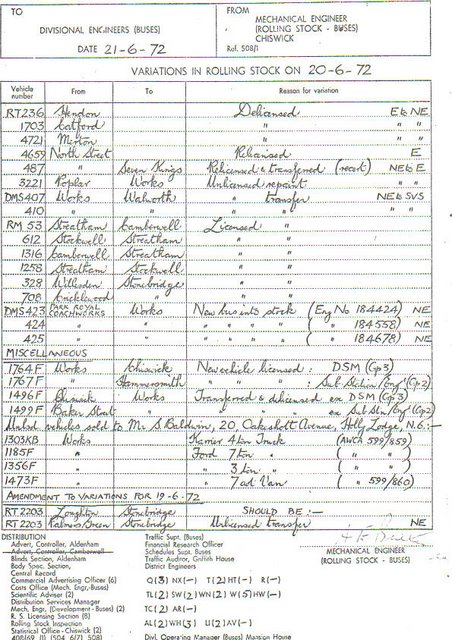 TO
FROM
MECHANICAL ENGINEER
(ROLLING STOCK - BUSES)
CHISWICK
DIVISIONAL ENGINEERS (BUSES)
DATE 21-6-72
Ref. 508/1
VARIATIONS IN ROLLING STOCK ON 20-6-72
Vehicle number From To Reason for variation
RT236 Hendon Delicensed E to NE
1703 Catford " " "
4721 Merton " " "
4659 North Street Relicensed E
487 " Seven Kings Relicensed & transferred (recert) NE to E
3221 Poplar Works Unlicensed repaint " "
DMS407 Works Walworth " transfer NE to SVS
410 " " " " " "
RM 53 Streatham Camberwell Licensed "
612 Stockwell Streatham " "
1316 Camberwell Streatham " "
1258 Streatham Stockwell " "
328 Willesden Stonebridge " "
708 Cricklewood " " "
DMS423 PARK ROYAL COACHWORKS Works New bus into stock (Eng No 184424) NE
424 " " " " " " ( " 184558) NE
425 " " " " " " ( " 184678) NE
MISCELLANEOUS
1764F Works Chiswick New vehicle licensed : DSM (Gp 3)
1767F " Hammersmith " " " : Sub Station/Eng' (Gp 2)
1496F Chiswick Works Transferred & delicensed ex DSM (Gp 3)
1499F Baker Street " " " " ex Sub Stn/Eng' (Gp 2)
Unlsd vehicles sold to Mr S Baldwin, 20, Oakeshott Avenue, Holly Lodge, N.6:-
1303KB Works Karrier 4 ton Truck (AWCA 599/859)
1185F " Ford 7 ton " ( " " )
1356F " " 3 ton " ( " " )
1473F " " 7 cwt Van ( " 599/860)
AMENDMENT TO VARIATIONS FOR 19-6-72
SHOULD BE :-
RT 2203 Loughton Stonebridge
RT 2203 Palmers Green Stonebridge Unlicensed transfer NE
DISTRIBUTION
Advert. Controller, Aldenham
Advert. Controller, Camberwell
Blinds Section, Aldenham
Body Spec. Section,
Central Record
Commercial Advertising Officer (6)
Costs Office (Mech. Engr.-Buses)
Scientific Adviser (2)
Distribution Services Manager
Mech. Engr. (Development - Buses) (2)
R. S. Licensing Section (8)
Rolling Stock Inspection
Statistical Office - Chiswick (2)
408/469 (1) 504 (6/7) 508
Traffic Supt. (Buses)
Financial Research Officer
Schedules Supt. Buses
Traffic Auditor, Griffith House
District Engineers
Q(3) NX(-) T(2) HT(-) R(-)
TL(2) SW(2) WN(2) W(5) HW(-)
TC(2) AR(-)
AL(2) WH(3) U(2) AV(-)
Divl. Operating Manager (Buses) Mansion House
MECHANICAL ENGINEER
(ROLLING STOCK - BUSES)